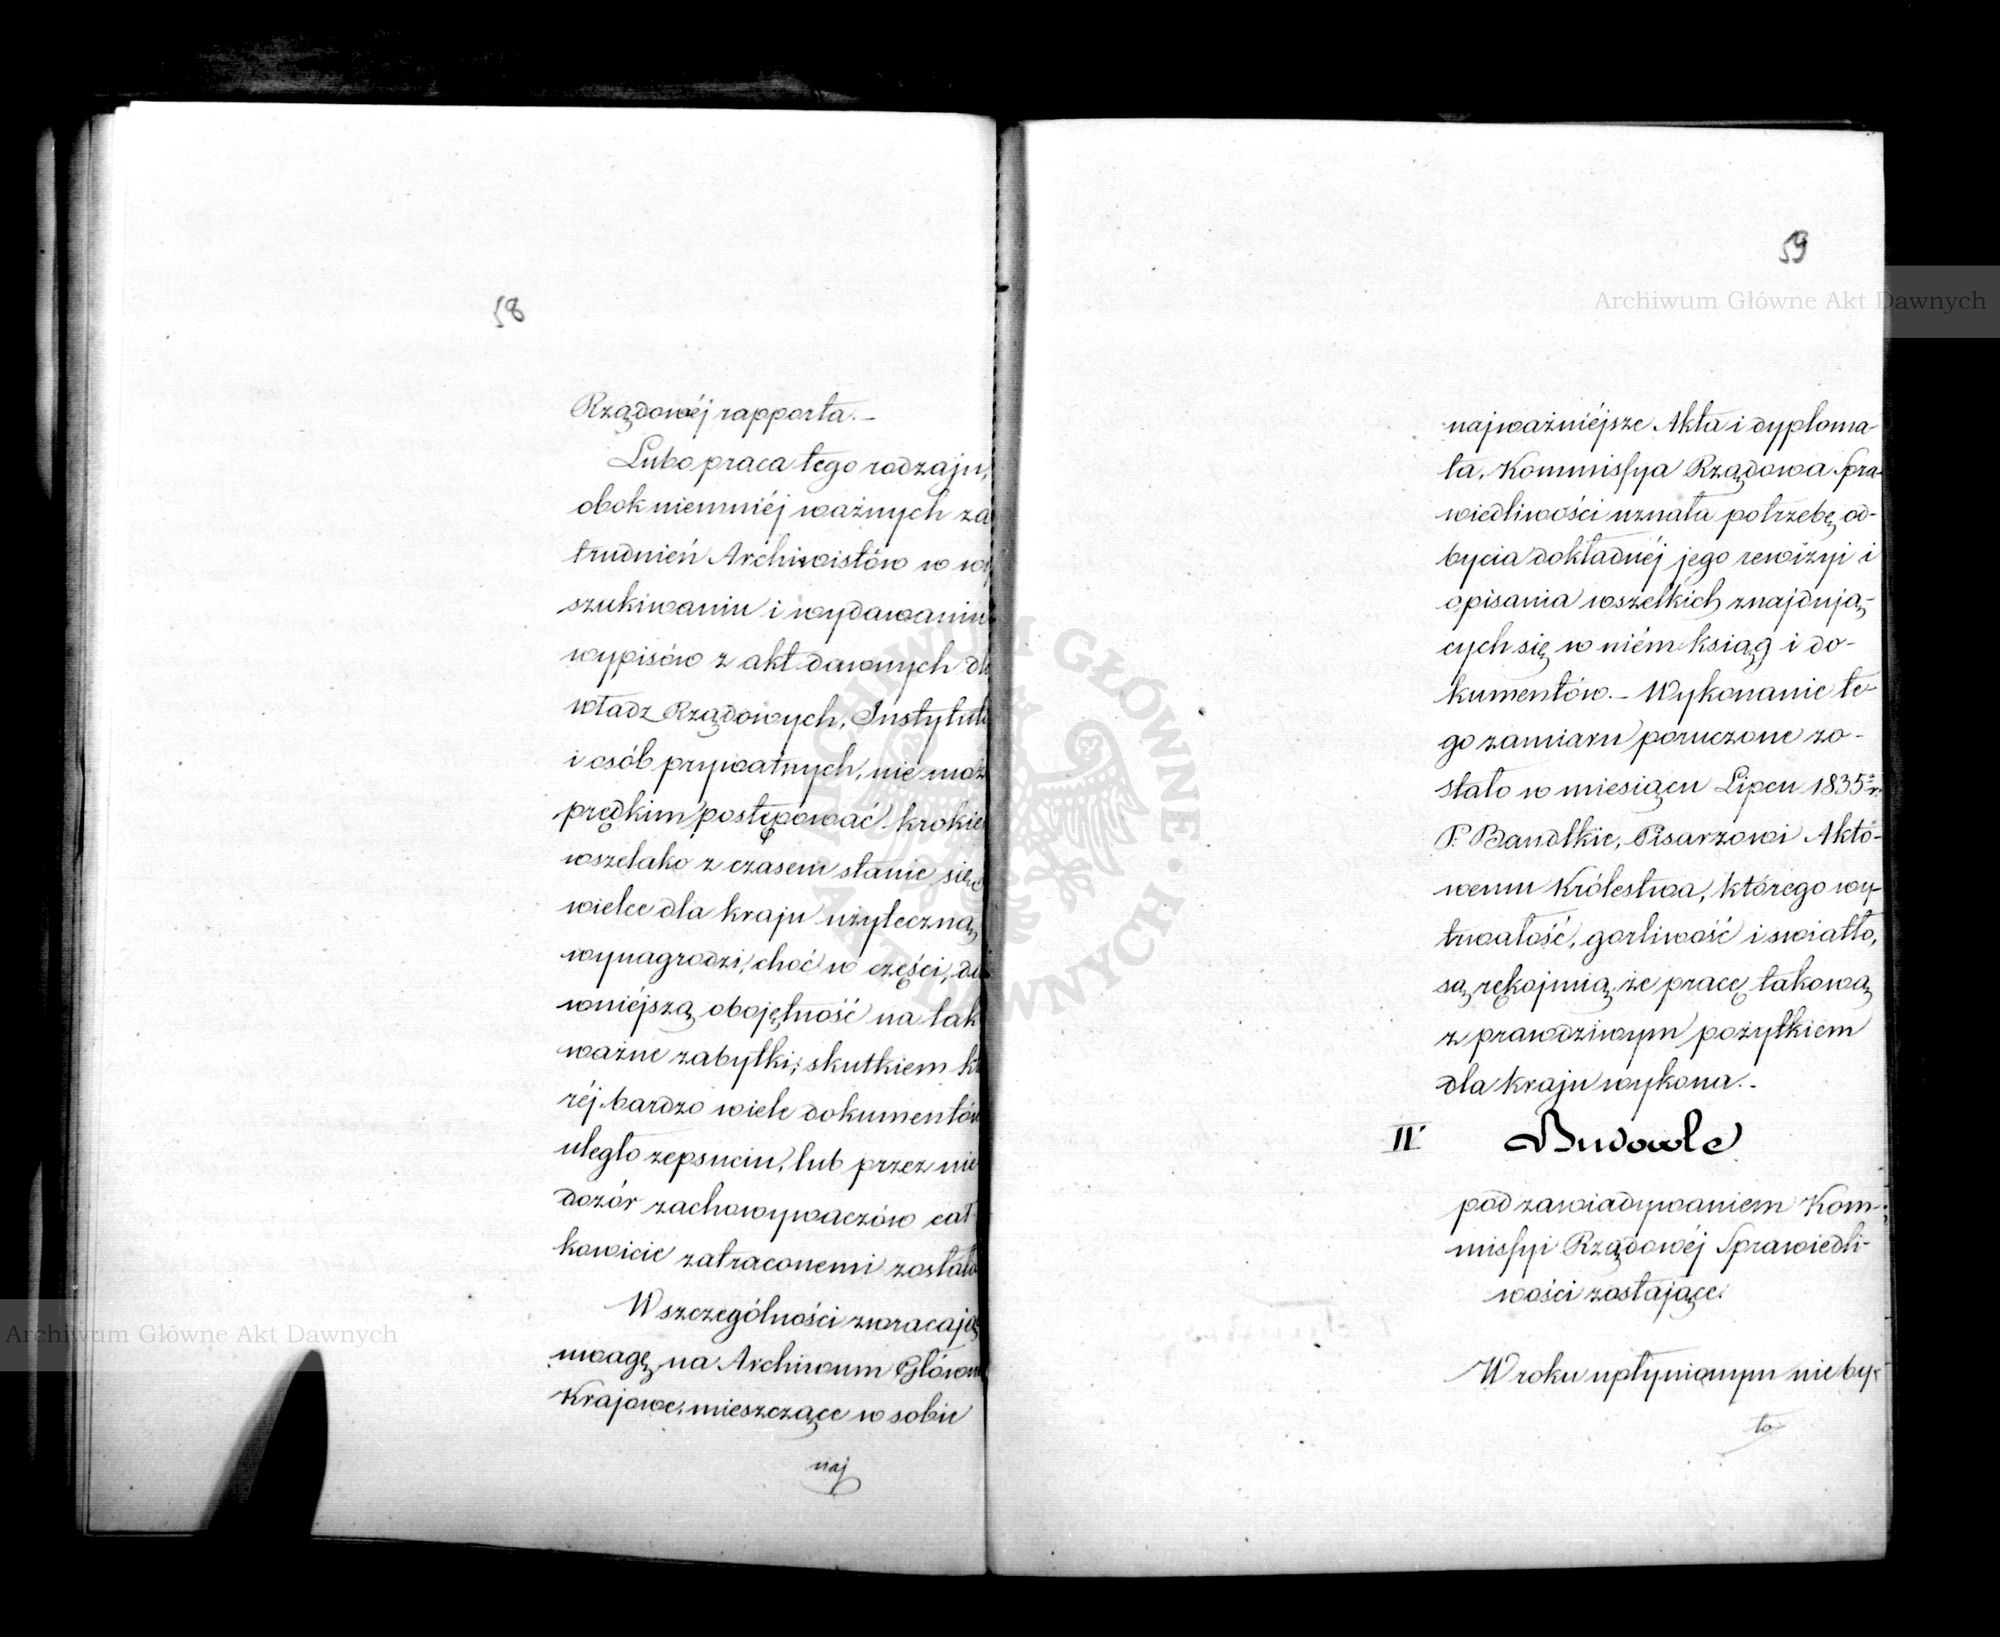 58
Rządowéj rapporta. –
Lubo praca tego rodzaju,
obok niemniéj ważnych za
trudnień Archiwistów w wy
szukiwaniu i wydawaniu
wypisów z akt dawnych dla
władz Rządowych, Instytut
i osób prywatnych, nie moż
prędkim postępować krokie
wszelako z czasem stanie się
wielce dla kraju użyteczną
wynagrodzi, choć w części, da
wniéjszą obojętność na tak
ważne zabytki; skutkiem kt
réj bardzo wiele dokumentów
uległo zepsuciu, lub przez nie
dozór zachowywaczów cał
kowicie zatraconemi zostało
W szczególności zwracając
uwagę na Archiwum Główne
Krajowe, mieszczące w sobie
naj
59
najważniéjsze Akta i dyploma-
ta, Kommissya Rządowa Spra-
wiedliwości uznała potrzebę od-
bycia dokładnéj jego rewizyi i
opisania wszelkich znajdują-
cych się w niém ksiąg i do-
kumentów. – Wykonanie te-
go zamiaru poruczone zo-
stało w miesiącu Lipcu 1835 r.
P. Bandtkie, Pisarzowi Akto-
wemu Królestwa, którego wy-
trwałość, gorliwość i swiatło,
są rękojmią, że pracę takową
z prawdziwym pożytkiem
dla kraju wykona. –
IV Budowle
pod zawiadywaniem Kom-
missyi Rządowéj Sprawiedli-
wości zostające.
W roku upłynionym nie by-
ło
Archiwum Główne Akt Dawnych
Archiwum Główne Akt Dawnych
ARCHIWUM GŁÓWNE AKT DAWNYCH